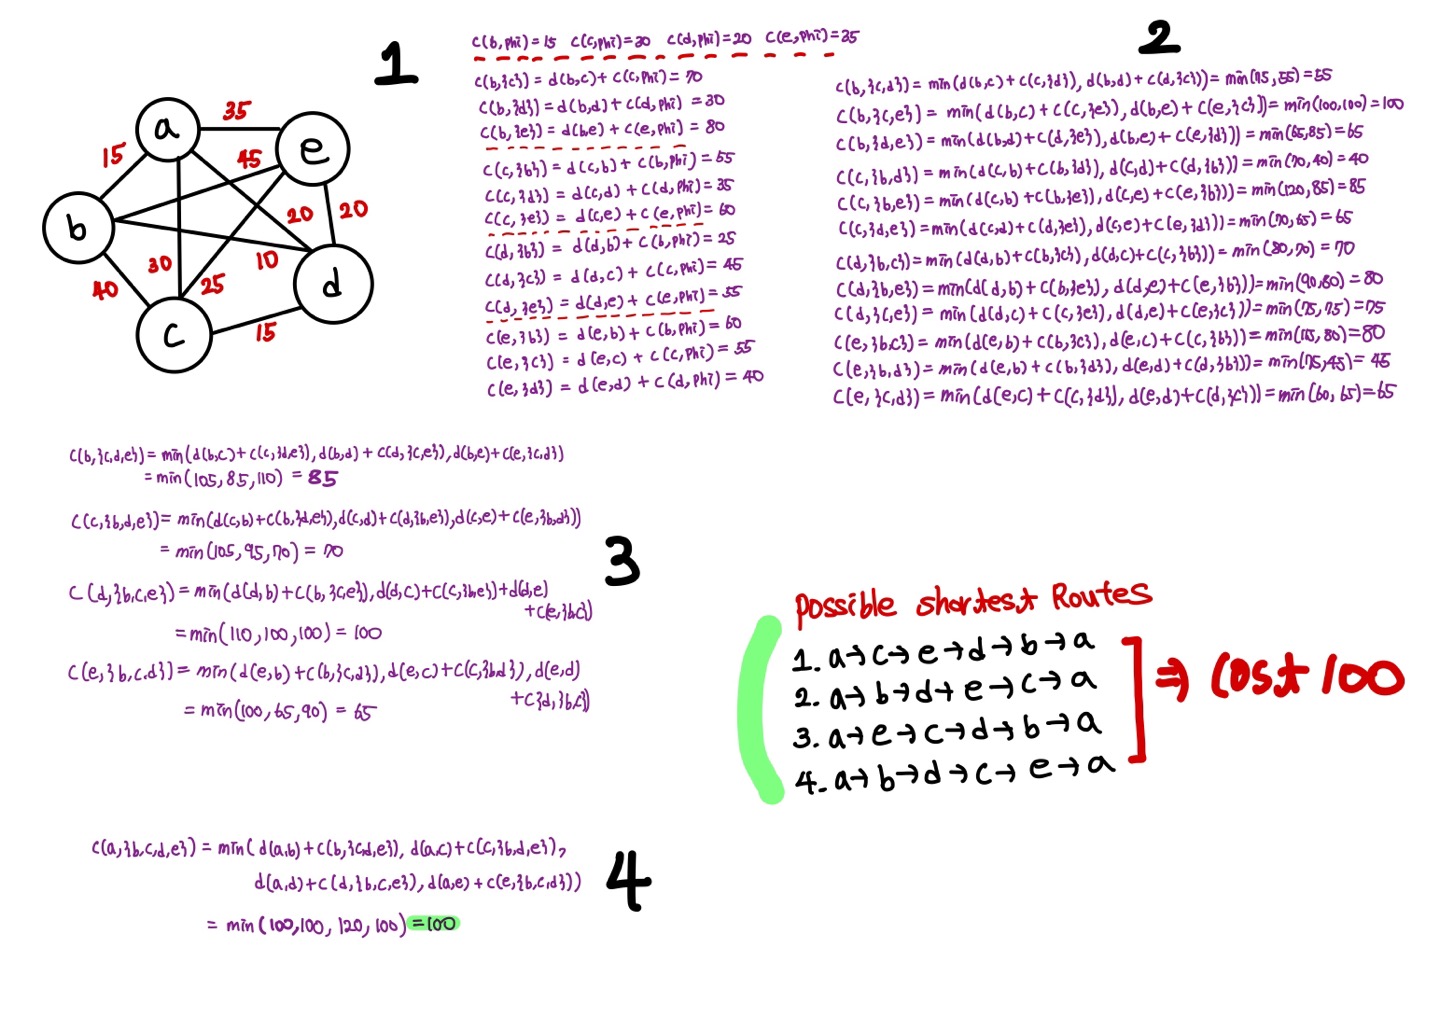 1
a
35
e
15
45
b
20
20
30
10
40
25
d
c
15
C(b,phi)=15 C(c,phi)=30 C(d,phi)=20 C(e,phi)=35
C(b,{c}) = d(b,c)+ C(c,phi) = 70
C(b,{d}) = d(b,d) + C(d,phi) = 30
C(b,{e}) = d(b,e) + C(e,phi) = 80
C(c,{b}) = d(c,b) + C(b,phi) = 55
C(c,{d}) = d(c,d) + C(d,phi) = 35
C(c,{e}) = d(c,e) + C(e,phi) = 60
C(d,{b}) = d(d,b) + C(b,phi) = 25
C(d,{c}) = d(d,c) + C(c,phi) = 45
C(d,{e}) = d(d,e) + C(e,phi) = 55
C(e,{b}) = d(e,b) + C(b,phi) = 60
C(e,{c}) = d(e,c) + C(c,phi) = 55
C(e,{d}) = d(e,d) + C(d,phi) = 40
2
C(b,{c,d}) = min(d(b,c) + C(c,{d}), d(b,d) + C(d,{c})) = min(75,55)=55
C(b,{c,e}) = min(d(b,c) + C(c,{e}), d(b,e) + C(e,{c})) = min(100,100) = 100
C(b,{d,e}) = min(d(b,d)+C(d,{e}), d(b,e) + C(e,{d})) = min(65,85) = 65
C(c,{b,d}) = min(d(c,b) + C(b,{d}), d(c,d) + C(d,{b})) = min(70,40) = 40
C(c,{b,e}) = min(d(c,b) + C(b,{e}), d(c,e) + C(e,{b})) = min(120,85) = 85
C(c,{d,e}) = min(d(c,d) + C(d,{e}), d(c,e) + C(e,{d})) = min(70,65) = 65
C(d,{b,c}) = min(d(d,b) + C(b,{c}), d(d,c)+C(c,{b})) = min(80,70) = 70
C(d,{b,e}) = min(d(d,b) + C(b,{e}), d(d,e) + C(e,{b})) = min(90,80) = 80
C(d,{c,e}) = min(d(d,c) + C(c,{e}), d(d,e) + C(e,{c})) = min(75,75) = 75
C(e,{b,c}) = min(d(e,b) + C(b,{c}), d(e,c) + C(c,{b})) = min(115,80) = 80
C(e,{b,d}) = min(d(e,b) + C(b,{d}), d(e,d) + C(d,{b})) = min(75,45) = 45
C(e,{c,d}) = min(d(e,c) + C(c,{d}), d(e,d)+C(d,{c})) = min(60,65)=65
C(b,{c,d,e}) = min(d(b,c)+ C(c,{d,e}), d(b,d) + C(d,{c,e}), d(b,e)+C(e,{c,d})
= min(105,85,110) = 85
C(c,{b,d,e}) = min(d(c,b)+C(b,{d,e}), d(c,d)+C(d,{b,e}), d(c,e) + C(e,{b,d}))
= min(105,95,70) = 70
3
C(d,{b,c,e}) = min(d(d,b)+C(b,{c,e}), d(d,c)+C(c,{b,e})+d(d,e)
+C(e,{b,c})
= min(110,100,100) = 100
C(e,{b,c,d}) = min(d(e,b)+C(b,{c,d}), d(e,c)+C(c,{b,d}), d(e,d)
+C{d,{b,c})
= min(100,65,90) = 65
Possible shortest Routes
1. a→c→e→d→b→a
2. a→b→d→e→c→a
3. a→e→c→d→b→a
4. a→b→d→c→e→a
⇒ Cost 100
C(a,{b,c,d,e}) = min(d(a,b)+C(b,{c,d,e}), d(a,c)+C(c,{b,d,e}),
d(a,d)+C(d,{b,c,e}), d(a,e) + C(e,{b,c,d}))
4
= min(100,100,120,100) =100